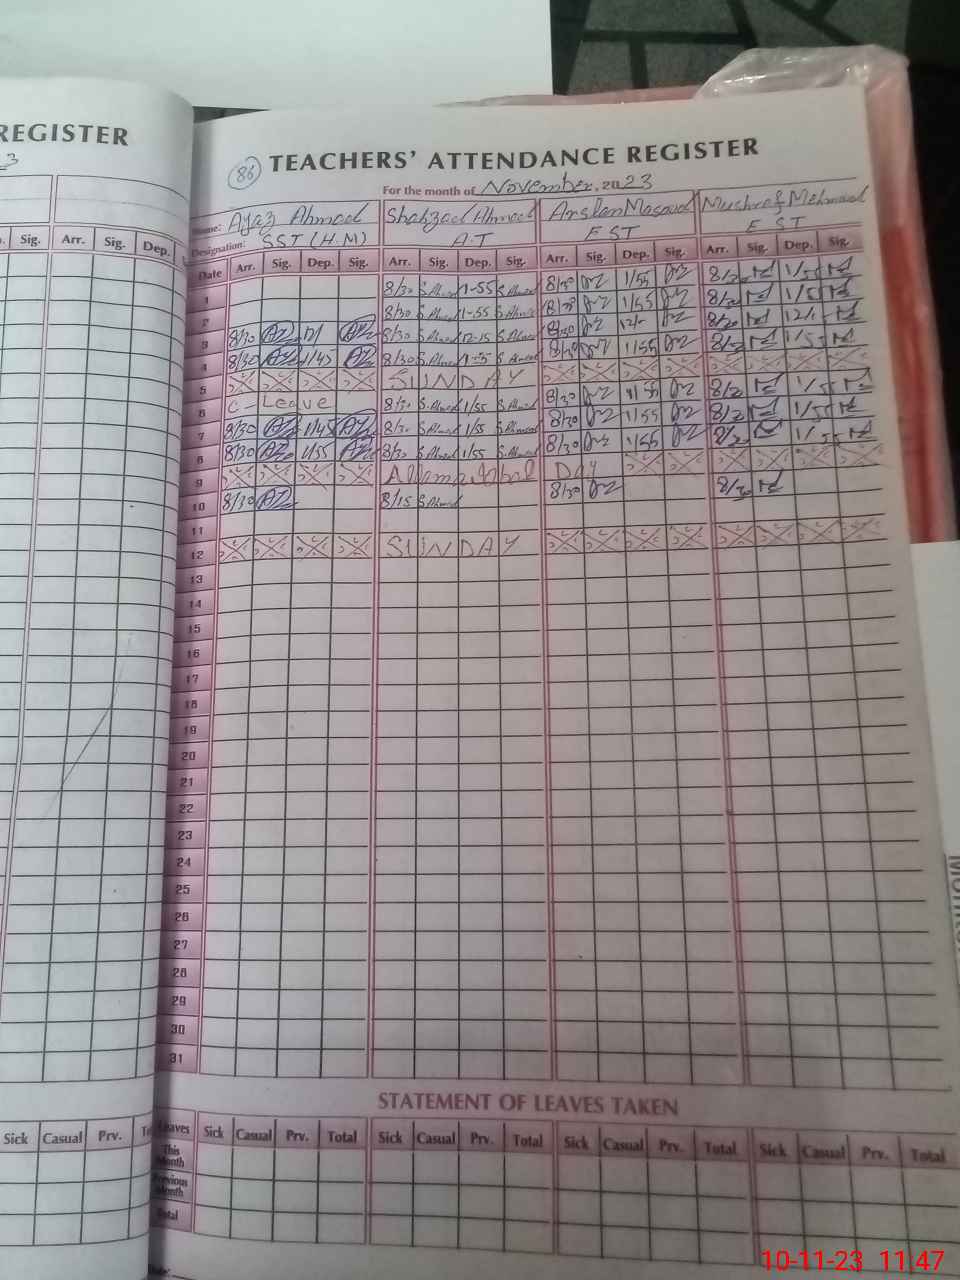 REGISTER
3
Sig. Arr. Sig. Dep.
86 TEACHERS' ATTENDANCE REGISTER
For the month of November, 2023
Name: Ajaz Ahmad Shahzad Ahmad Arslan Masood Mushraf Mehmood
Designation: SST (H.M) A.T EST EST
Date Arr. Sig. Dep. Sig. Arr. Sig. Dep. Sig. Arr. Sig. Dep. Sig. Arr. Sig. Dep. Sig.
1 8/30 S.Ahmad 1-55 S.Ahmad 8/30 1/55 8/30 1/55
2 8/30 S.Ahmad 1-55 S.Ahmad 8/30 1/55 8/30 1/55
3 8/30 AZ AZ 8/30 S.Ahmad 12-15 S.Ahmad 8/30 12/- 8/30 12/-
4 8/30 AZ 1/45 AZ 8/30 S.Ahmad 1-55 S.Ahmad 8/30 1/55 8/30 1/55
5 SUNDAY
6 C-Leave 8/30 S.Ahmad 1/55 S.Ahmad 8/30 1/55 8/30 1/55
7 8/30 AZ 1/45 AZ 8/30 S.Ahmad 1/55 S.Ahmad 8/30 1/55 8/30 1/55
8 8/30 AZ 1/55 AZ 8/30 S.Ahmad 1/55 S.Ahmad 8/30 1/55 8/30 1/55
9 Allama Iqbal DAY
10 8/30 AZ 8/15 S.Ahmad 8/30 8/30
11
12 SUNDAY
13
14
15
16
17
18
19
20
21
22
23
24
25
26
27
28
29
30
31
STATEMENT OF LEAVES TAKEN
Sick Casual Prv. Leaves Sick Casual Prv. Total Sick Casual Prv. Total Sick Casual Prv. Total Sick Casual Prv. Total
This Month
Previous Month
Total
10-11-23 11:47